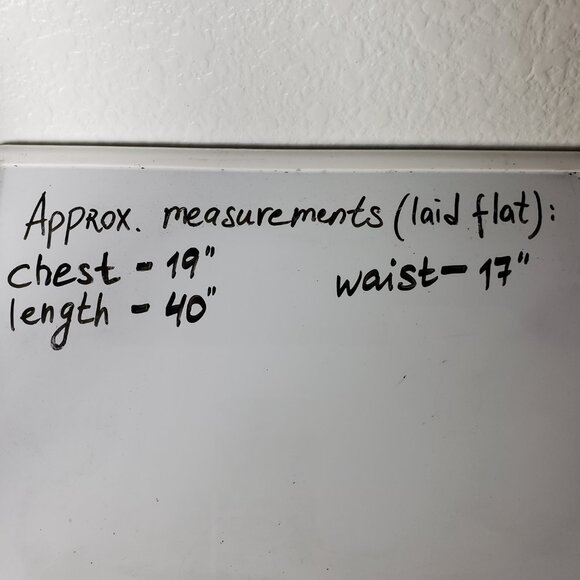 Approx. measurements (laid flat):
chest - 19" waist - 17"
length - 40"